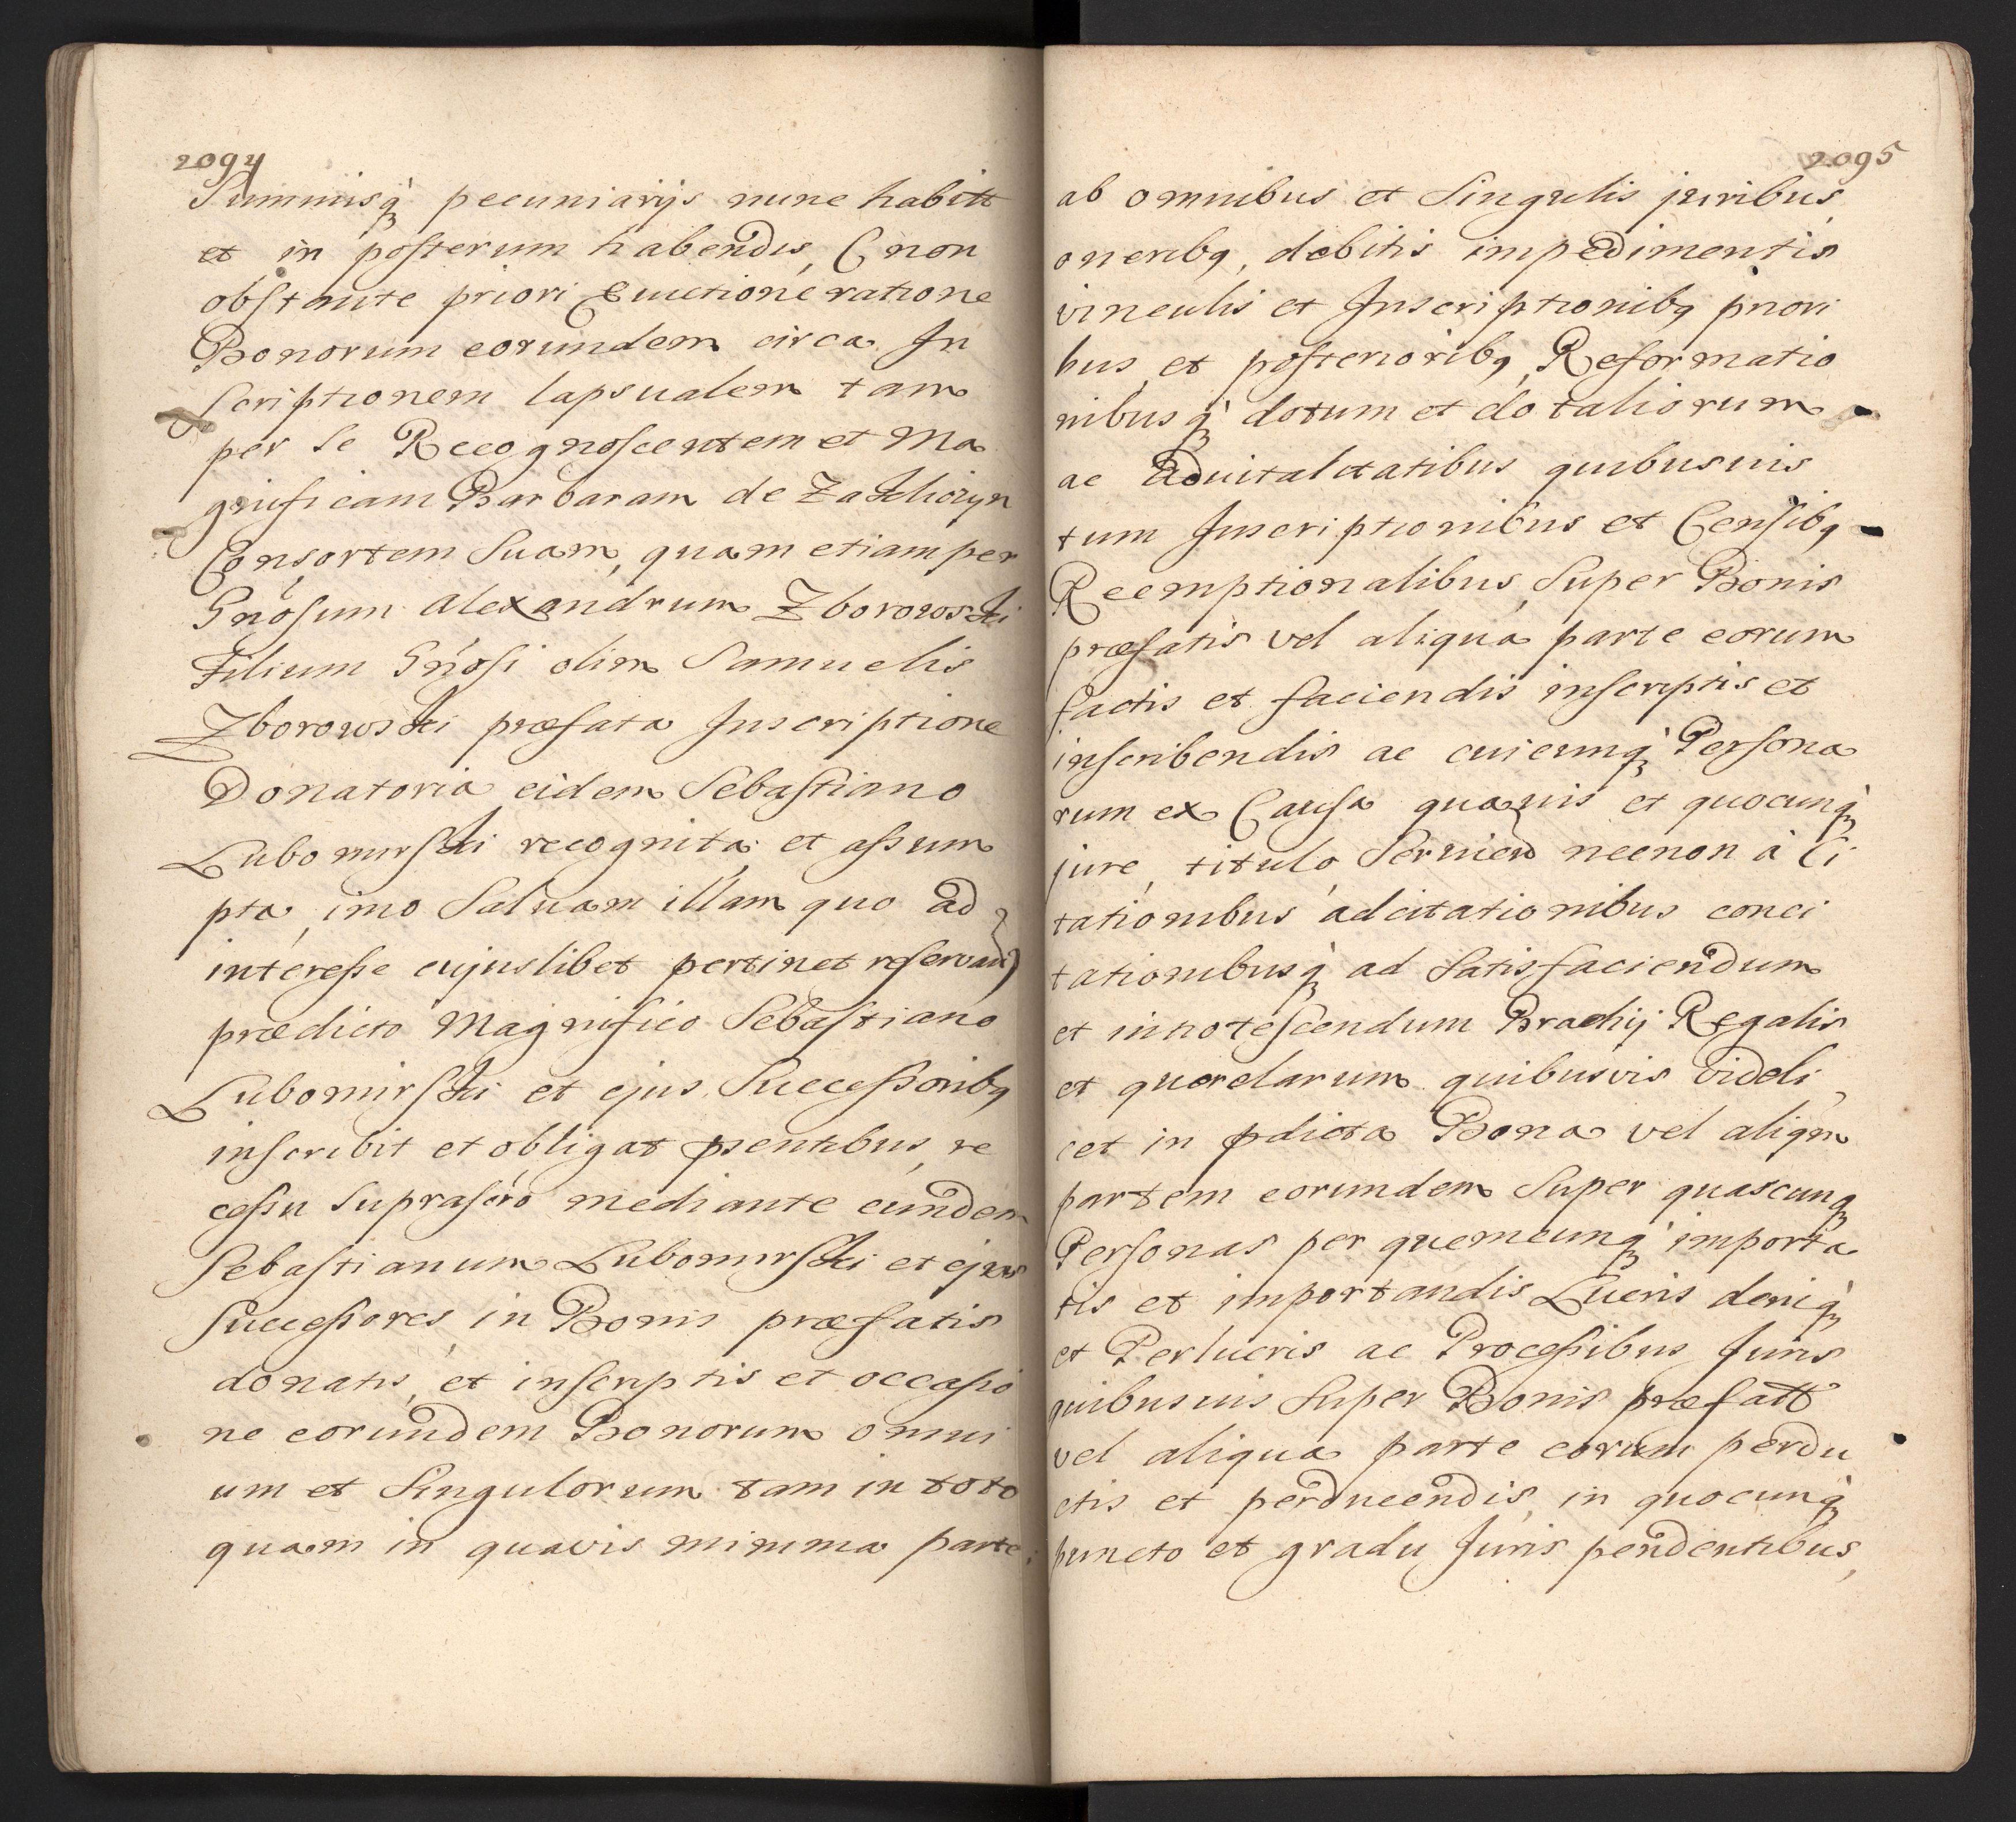 2094
Summisq̀ pecuniarijs nunc habitt
et in posterum habendis, (non
obstante priori Euictione ratione
Bonorum eorundem circa In
scriptionem lapsualem tam
per se Recognoscentem et Ma
gnificam Barbaram de
Consortem Suam, quam etiam per
Gnosum Alexandrum Zborowski
Filium Gnosi olim Samuelis
Zborowski præfata Inscriptione
Donatoria eidem Sebastiano
Lubomirski recognita et assum
pta, imo Saluam illam quo ad
interesse cujuslibet pertinet reseruan)
prædicto Magnifico Sebastiano
Lubomirski et ejus Successoribq
inscribit et obligat psentibus, re
cessu suprascro mediante eundem
Sebastianum Lubomirski et ejus
Successores in Bonis præfatis
donatis, et inscriptis et occasio
ne eorundem Bonorum omni
um et Singulorum tam in toto
quam in quavis minima parte;
2095
ab omnibus et Singulis juribus,
oneribq, debitis impedimentis
vinculis et Inscriptionibq priori
bus et posterioribq, Reformatio
nibusq̀ dotum et dotaliorum
ac aduitalitatibus quibusuis
tum Inscriptionibus et Censibq
Reemptionalibus, Super Bonis
præfatis vel aliqua parte eorum
factis et faciendis inscriptis et
inscribendis ac cuicunq̀ Persona
rum ex Causa quauis et quocunq̀
jure, titulo Seruien necnon à Ci
tationibus adcitationibus conci
tationibusq̀ ad Satisfaciendum
et innotescendum Brachij Regalis
et querelarum quibusvis videli
cet in pdicta Bona vel aliqm
partem eorundem Super quascunq
Personas per quemcunq̀ importa
tis et importandis Lucris deniq̀
et Perlucris ac Processibus Juris
quibusuis Super Bonis præfatt
vel aliqua parte eorum perdu
ctis et perducendis, in quocunq̀
puncto et gradu Juris pendentibus,